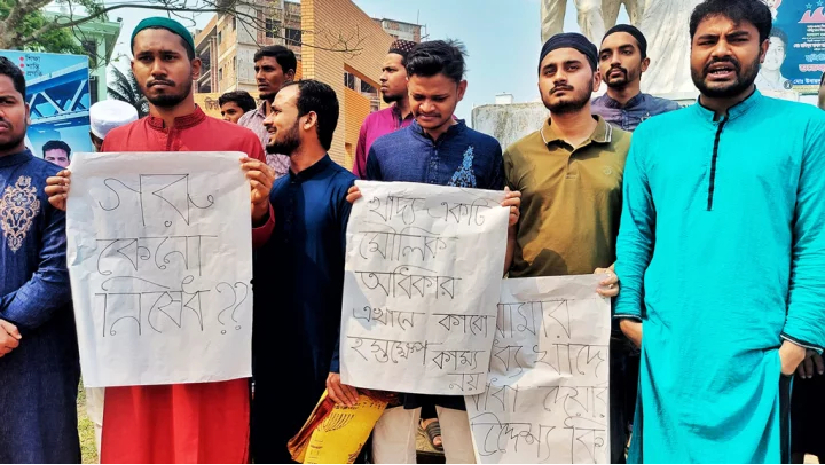 গরু
কেনো
নিষেধ ??
খাদ্য একটি
মৌলিক
অধিকার
এখানে কারো
হস্তক্ষেপ কাম্য
নয়
খাদ্যে
দেয়ার
উদ্দেশ্য কি